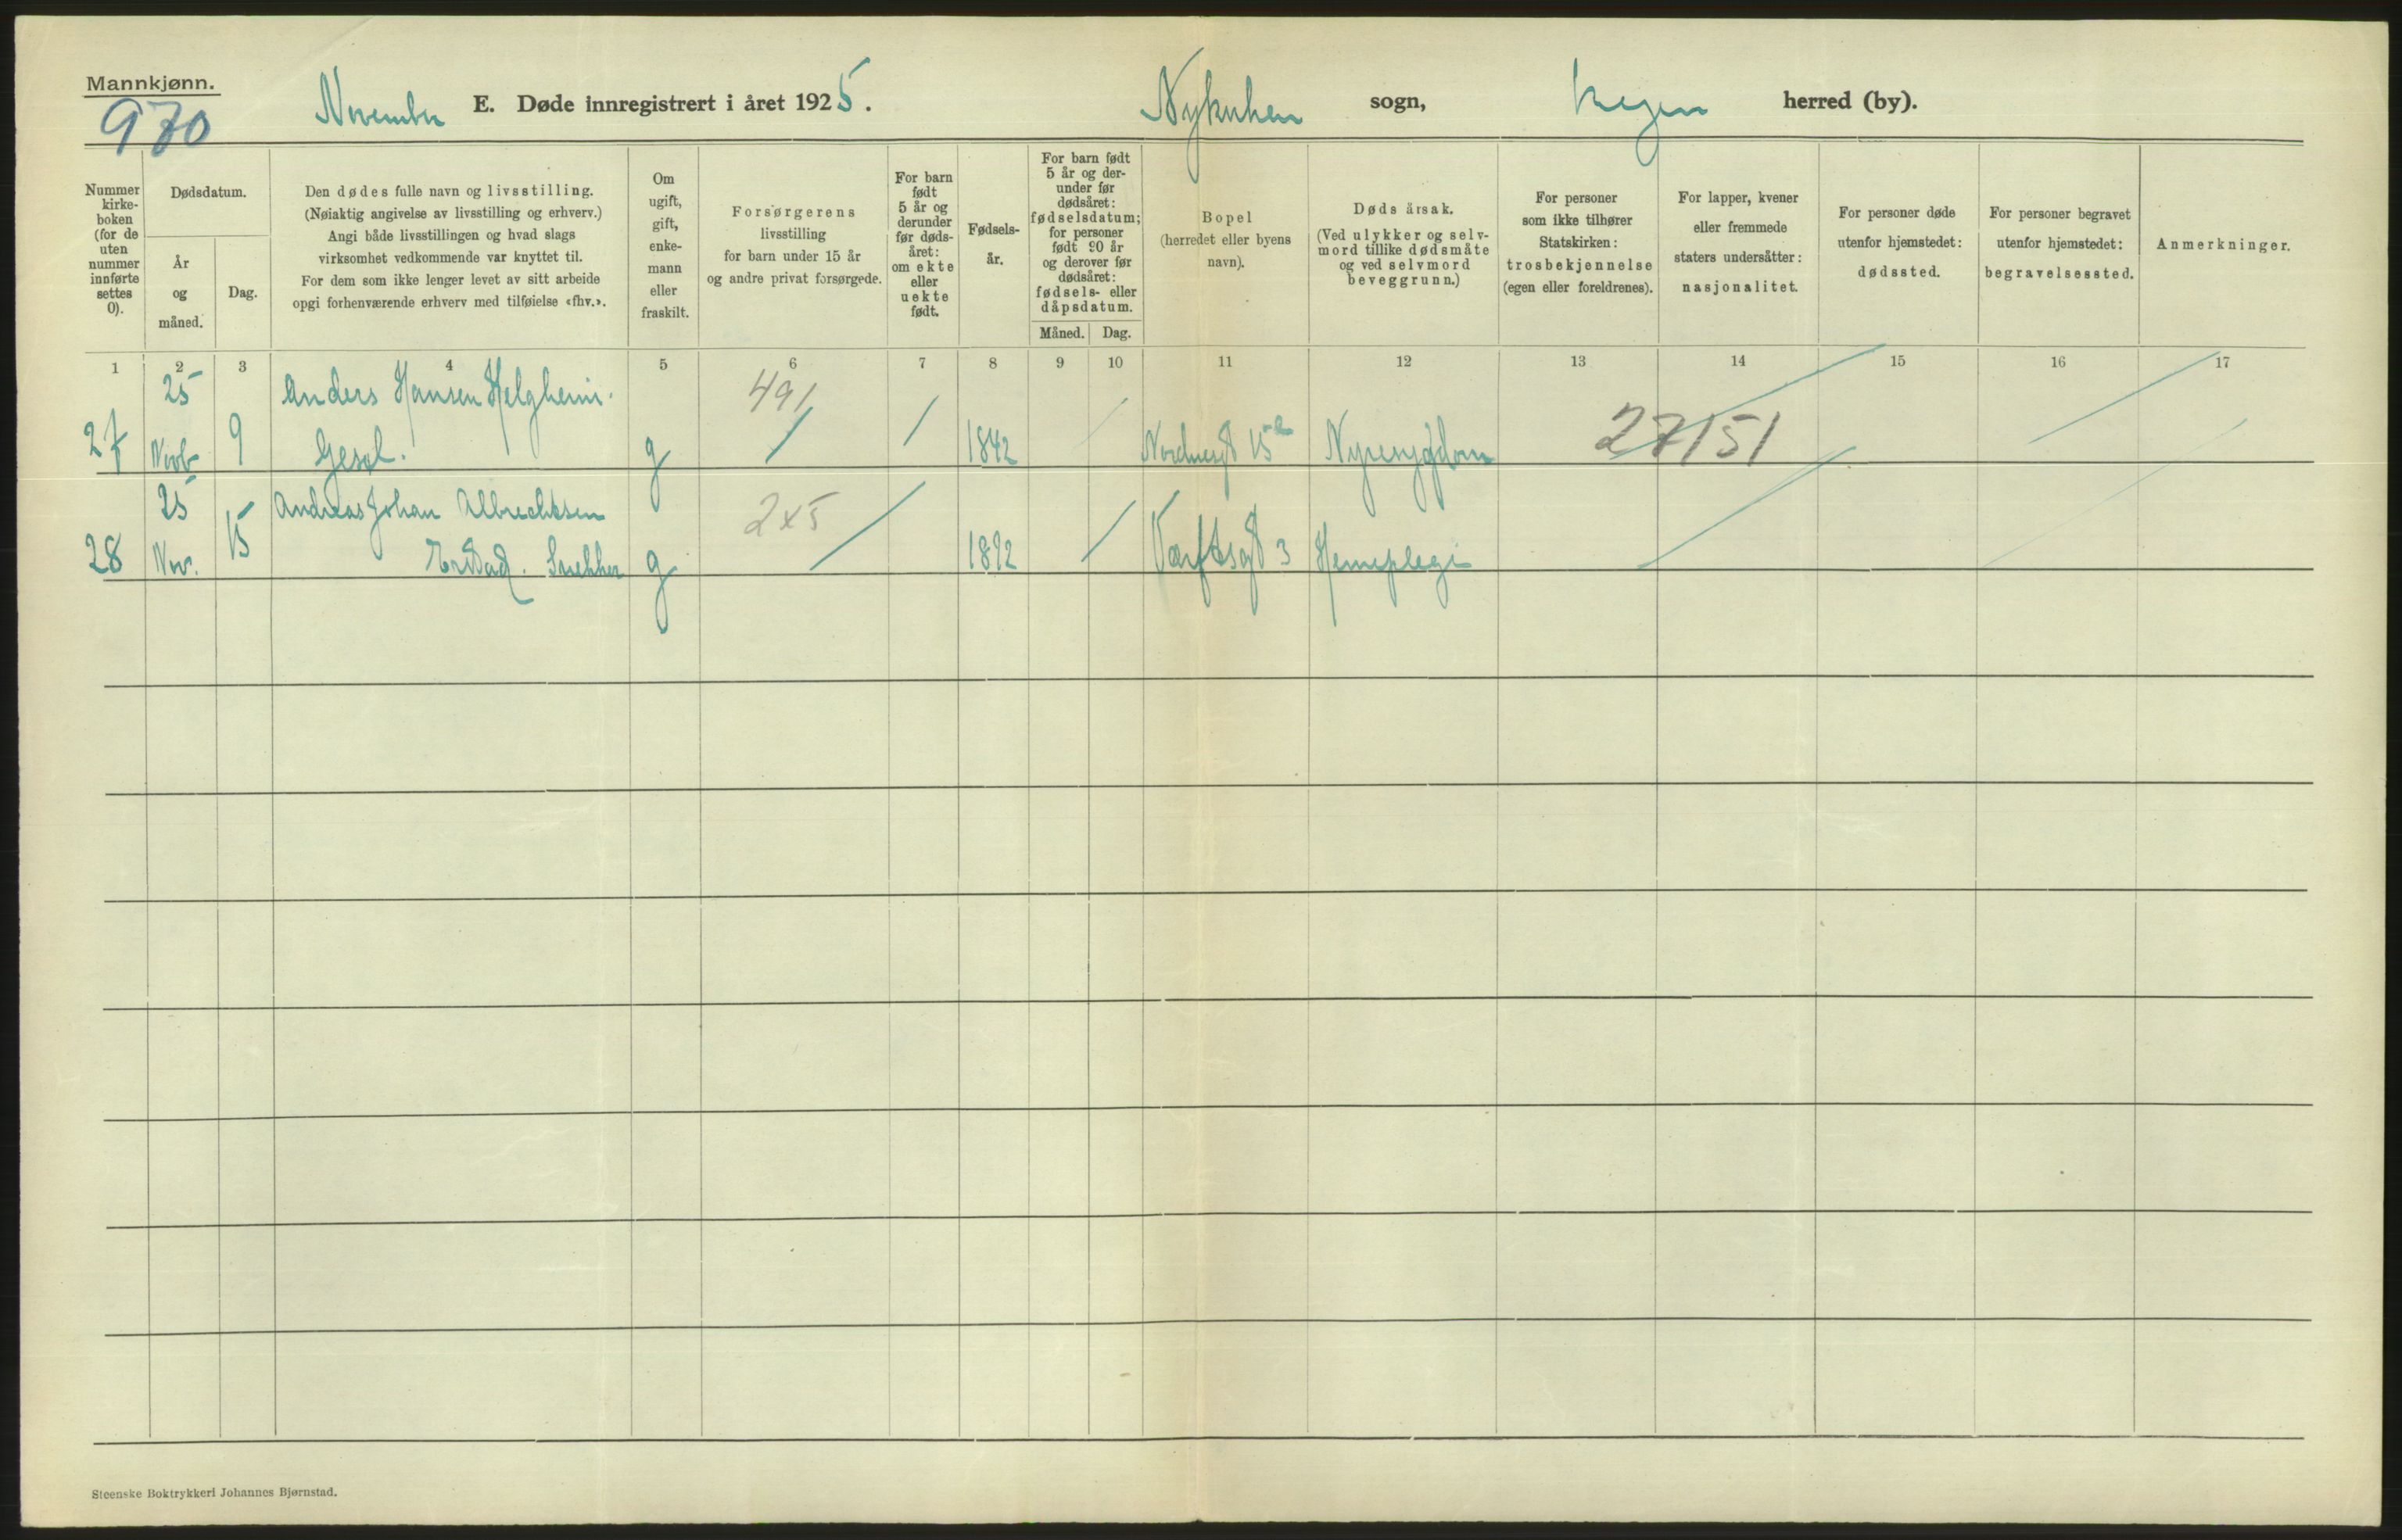 Mannkjønn.
970
November E. Døde innregistrert i året 1925. Nykirken sogn, Bergen herred (by).
Nummer kirke- boken (for de uten nummer innførte settes 0).
Dødsdatum.
År og måned.
Dag.
Den dødes fulle navn og livsstilling.
(Nøiaktig angivelse av livsstilling og erhverv.)
Angi både livsstillingen og hvad slags
virksomhet vedkommende var knyttet til.
For dem som ikke lenger levet av sitt arbeide
opgi forhenværende erhverv med tilføielse «fhv.».
Om ugift, gift, enke- mann eller fraskilt.
Forsørgerens
livsstilling
for barn under 15 år
og andre privat forsørgede.
For barn født 5 år og derunder før døds- året: om ekte eller uekte født.
Fødsels- år.
For barn født 5 år og der- under før dødsåret: fødselsdatum; for personer født 90 år og derover før dødsåret: fødsels- eller dåpsdatum.
Måned. Dag.
Bopel
(herredet eller byens
navn).
Dødsårsak.
(Ved ulykker og selv-
mord tillike dødsmåte
og ved selvmord
beveggrunn.)
For personer
som ikke tilhører
Statskirken:
trosbekjennelse
(egen eller foreldrenes).
For lapper, kvener
eller fremmede
staters undersåtter:
nasjonalitet.
For personer døde
utenfor hjemstedet:
dødssted.
For personer begravet
utenfor hjemstedet:
begravelsessted.
Anmerkninger.
1 2 3 4 5 6 7 8 9 10 11 12 13 14 15 16 17
25 Anders Hansen Helgheim. 491
27 Novb 9 Gesel. g / / 1842 Nordnesgt 15 Nyresygdom 27151
25 Andreas Johan Albrechtsen 2x5
28 Nov. 15 Erstad. Snekker g 1892 Værftsgt 3 Hemeplegi
Steenske Boktrykkeri Johannes Bjørnstad.